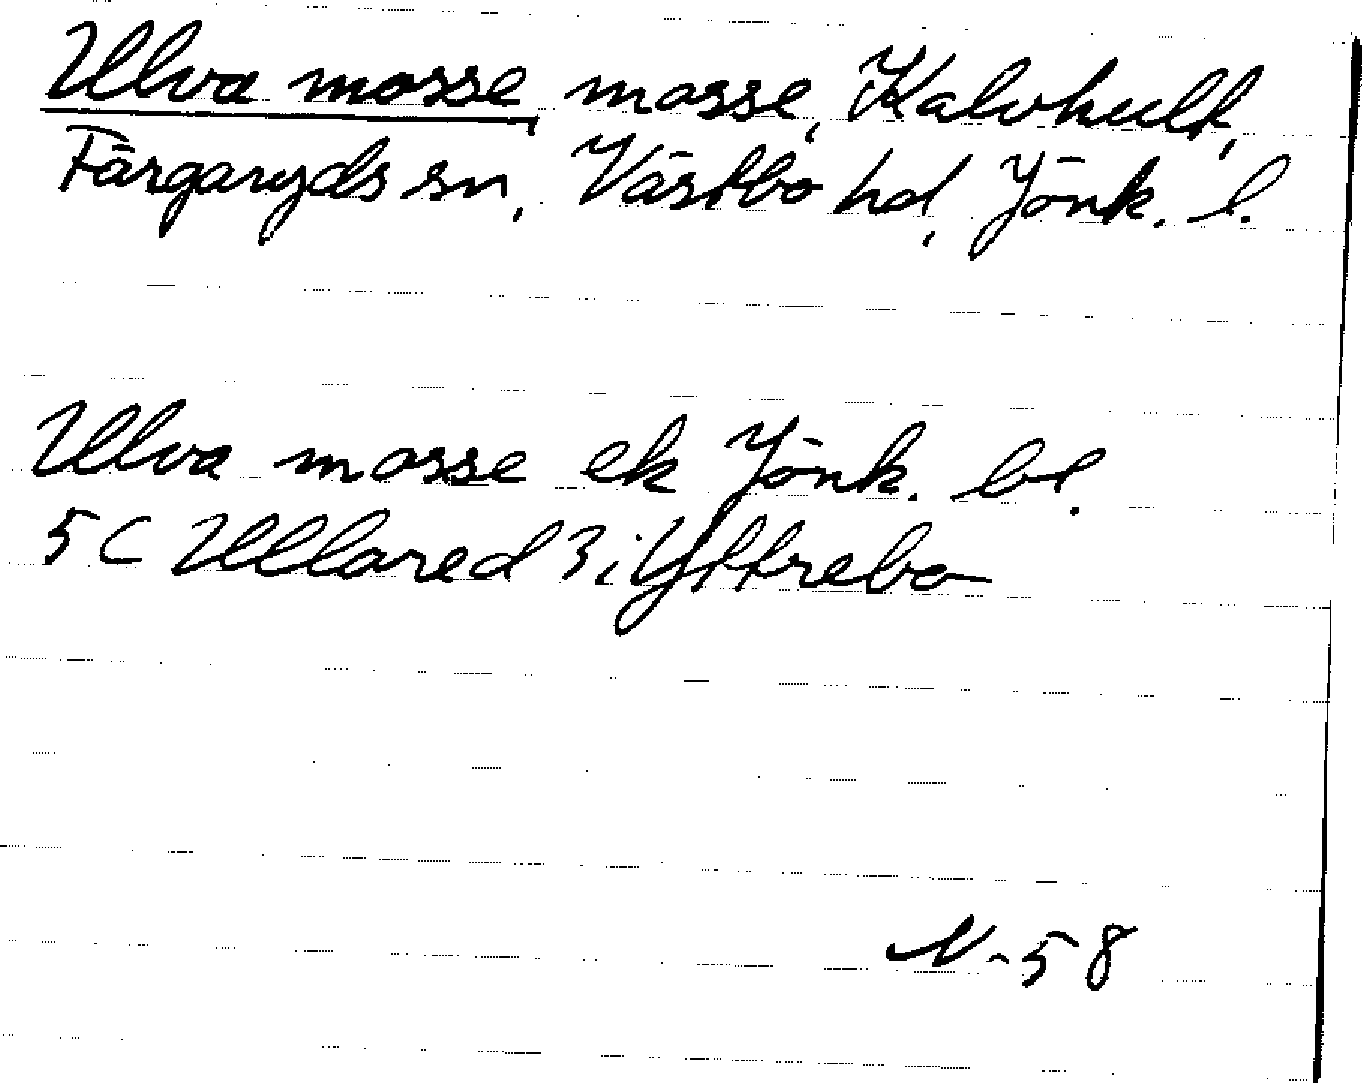 Ulva mosse, mosse, Kalvhult,
Färgaryds sn, Västbo hd, Jönk. l.
Ulva mosse ek Jönk. bl.
5 C Ullared 3; Yttrebo
N-58